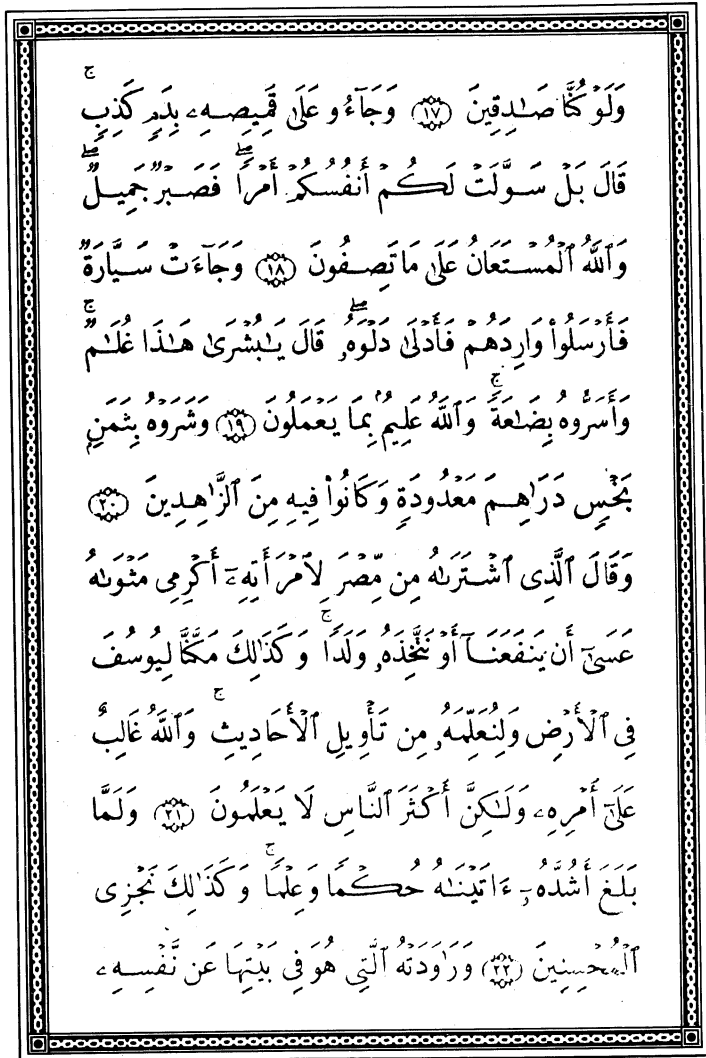 وَلَوۡ كُنَّا صَـٰدِقِينَ ﴿١٧﴾ وَجَآءُو عَلَىٰ قَمِيصِهِۦ بِدَمٍ۬ كَذِبٍ۬ۚ
قَالَ بَلۡ سَوَّلَتۡ لَكُمۡ أَنفُسُكُمۡ أَمۡرً۬اۖ فَصَبۡرٌ۬ جَمِيلٌ۬ۖ
وَٱللَّهُ ٱلۡمُسۡتَعَانُ عَلَىٰ مَا تَصِفُونَ ﴿١٨﴾ وَجَآءَتۡ سَيَّارَةٌ۬
فَأَرۡسَلُواْ وَارِدَهُمۡ فَأَدۡلَىٰ دَلۡوَهُۥۖ قَالَ يَـٰبُشۡرَىٰ هَـٰذَا غُلَـٰمٌ۬ۚ
وَأَسَرُّوهُ بِضَـٰعَةً۬ۚ وَٱللَّهُ عَلِيمُۢ بِمَا يَعۡمَلُونَ ﴿١٩﴾ وَشَرَوۡهُ بِثَمَنِۭ
بَخۡسٍ۬ دَرَٲهِمَ مَعۡدُودَةٍ۬ وَكَانُواْ فِيهِ مِنَ ٱلزَّٲهِدِينَ ﴿٢٠﴾
وَقَالَ ٱلَّذِى ٱشۡتَرَٮٰهُ مِن مِّصۡرَ لِٱمۡرَأَتِهِۦۤ أَكۡرِمِى مَثۡوَٮٰهُ
عَسَىٰٓ أَن يَنفَعَنَآ أَوۡ نَتَّخِذَهُۥ وَلَدً۬اۚ وَڪَذَٲلِكَ مَكَّنَّا لِيُوسُفَ
فِى ٱلۡأَرۡضِ وَلِنُعَلِّمَهُۥ مِن تَأۡوِيلِ ٱلۡأَحَادِيثِۚ وَٱللَّهُ غَالِبٌ
عَلَىٰٓ أَمۡرِهِۦ وَلَـٰكِنَّ أَڪۡثَرَ ٱلنَّاسِ لَا يَعۡلَمُونَ ﴿٢١﴾ وَلَمَّا
بَلَغَ أَشُدَّهُۥۤ ءَاتَيۡنَـٰهُ حُكۡمً۬ا وَعِلۡمً۬اۚ وَكَذَٲلِكَ نَجۡزِى
ٱلۡمُحۡسِنِينَ ﴿٢٢﴾ وَرَٲوَدَتۡهُ ٱلَّتِى هُوَ فِى بَيۡتِهَا عَن نَّفۡسِهِۦ